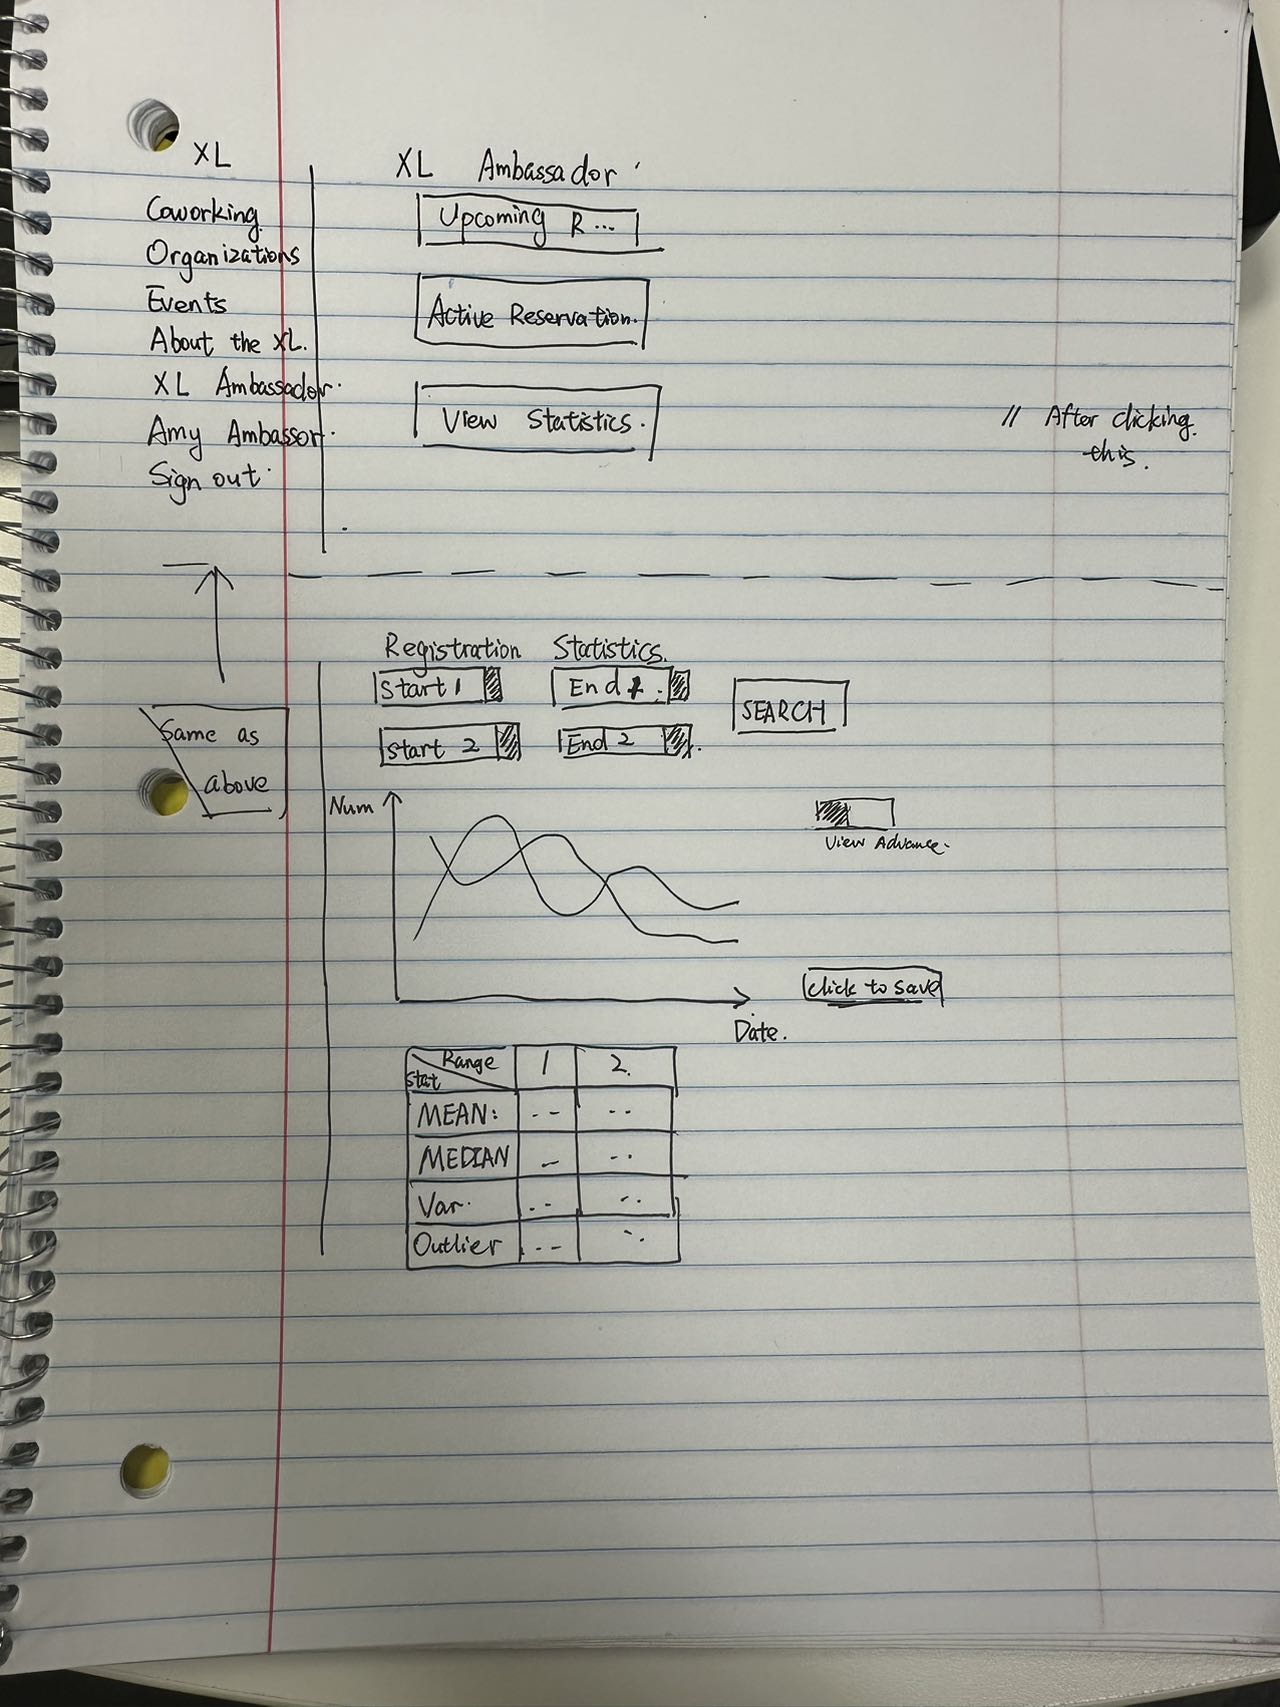 XL
Coworking
Organizations
Events
About the XL.
XL Ambassador.
Amy Ambassor.
Sign out.
XL Ambassador.
Upcoming R...
Active Reservation.
View Statistics.
// After clicking
this.
Same as
above
Registration Statistics.
Start 1 End 1 SEARCH
Start 2 End 2
Num
View Advance.
click to save
Date.
Range 1 2.
Stat
MEAN: -- --
MEDIAN -- --
Var. -- --
Outlier -- --